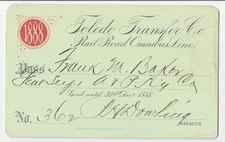 1888
Toledo Transfer Co
Rail Road Omnibus Line.
Pass Frank M. Baker
Gen'l Supt A & P Ry Co
Good until 31st Dec'r 1888
No. 362
MANAGER